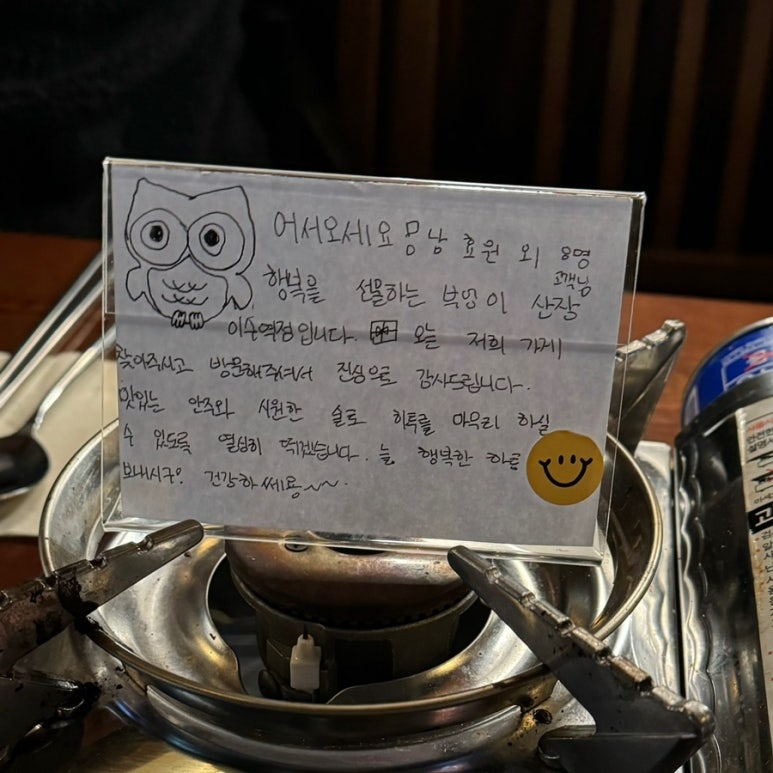 어서오세요 몽남 효원 외 8명
고객님
행복을 선물하는 부엉이 산장
이수역점입니다. 오늘 저희 가게
찾아주시고 방문해주셔서 진심으로 감사드립니다.
맛있는 안주와 시원한 술로 하루를 마무리 하실
수 있도록 열심히 뛰겠습니다. 늘 행복한 하루
보내시구 건강하쎄용~~.